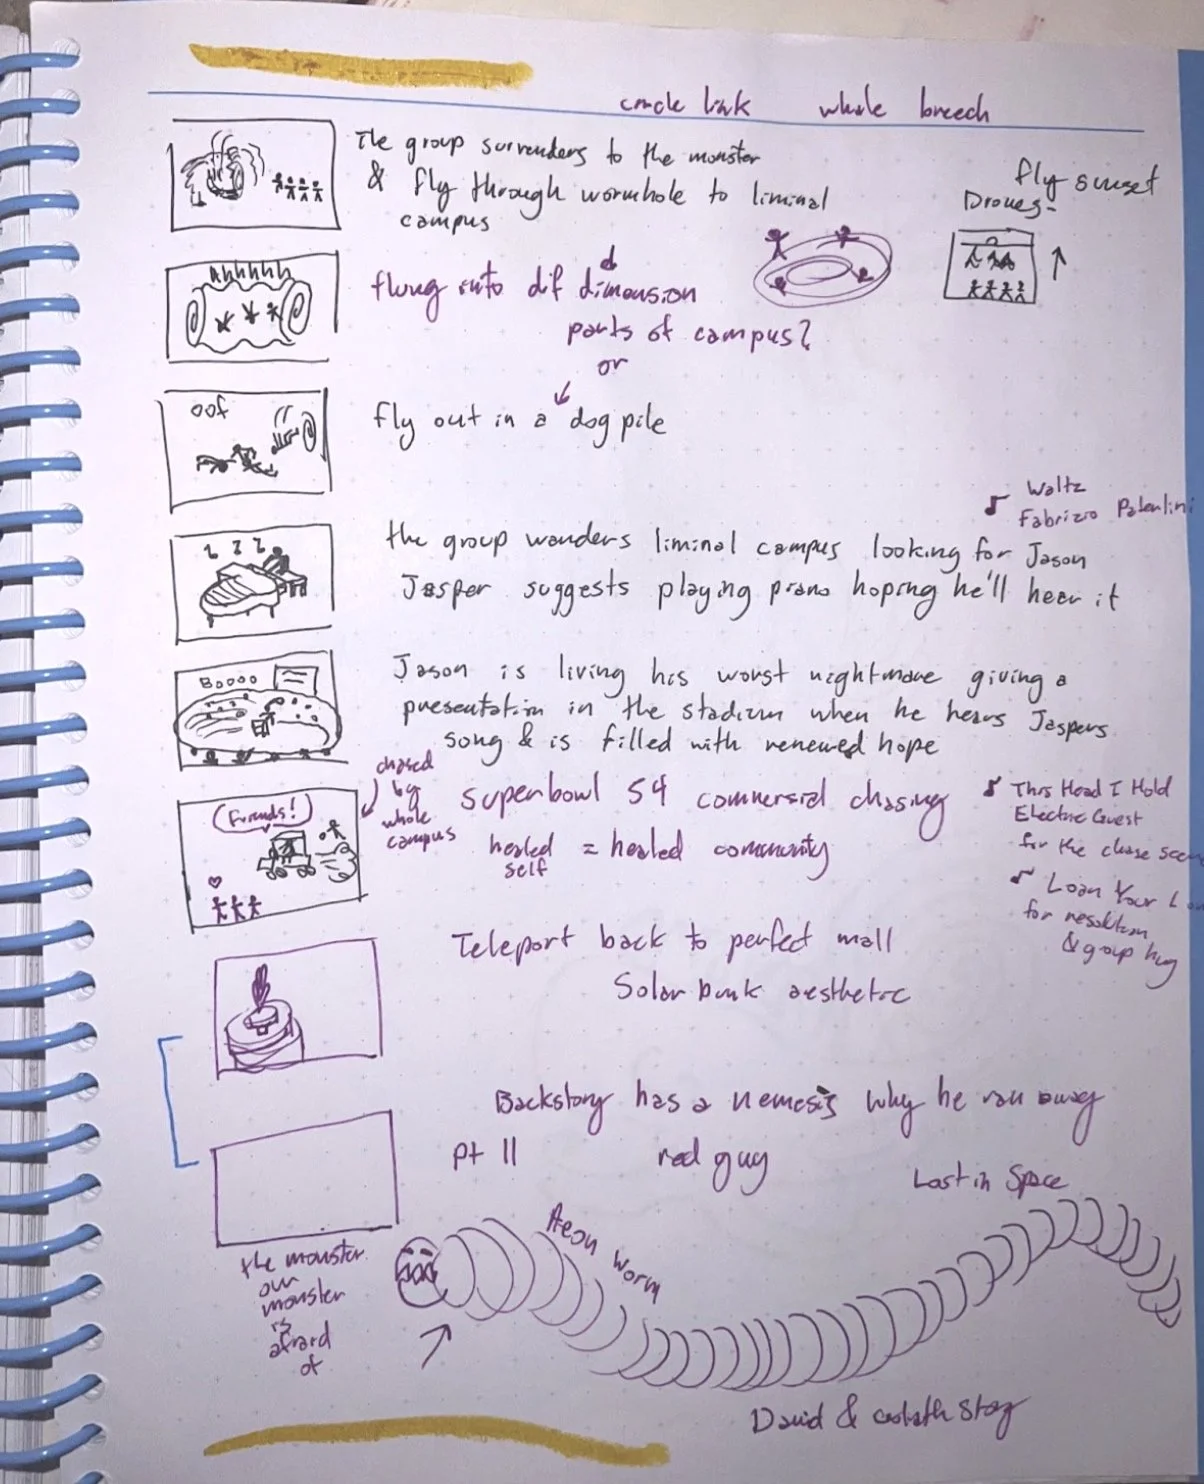 circle link whale breech
The group surrenders to the monster
& fly through wormhole to liminal
campus
fly sunset
Drones-
Ahhhhhh
flung into dif dimension
d
parts of campus?
or
oof
fly out in a dog pile
Waltz
Fabrizio Paterlini
the group wanders liminal campus looking for Jason
Jasper suggests playing piano hoping he'll hear it
Boooo
Jason is living his worst nightmare giving a
presentation in the stadium when he hears Jaspers
song & is filled with renewed hope
chased
by
whole
campus
Friends!
superbowl 54 commersial chasing
healed = healed community
self
This Head I Hold
Electric Guest
for the chase scene
Loan Your Lo
for resolution
& group hug
Teleport back to perfect mall
Solar punk aesthetic
Backstory has a nemesis why he ran away
pt II red guy
Lost in Space
Aeon Worm
the monster
our
monster
is
afraid
of
David & Goliath story